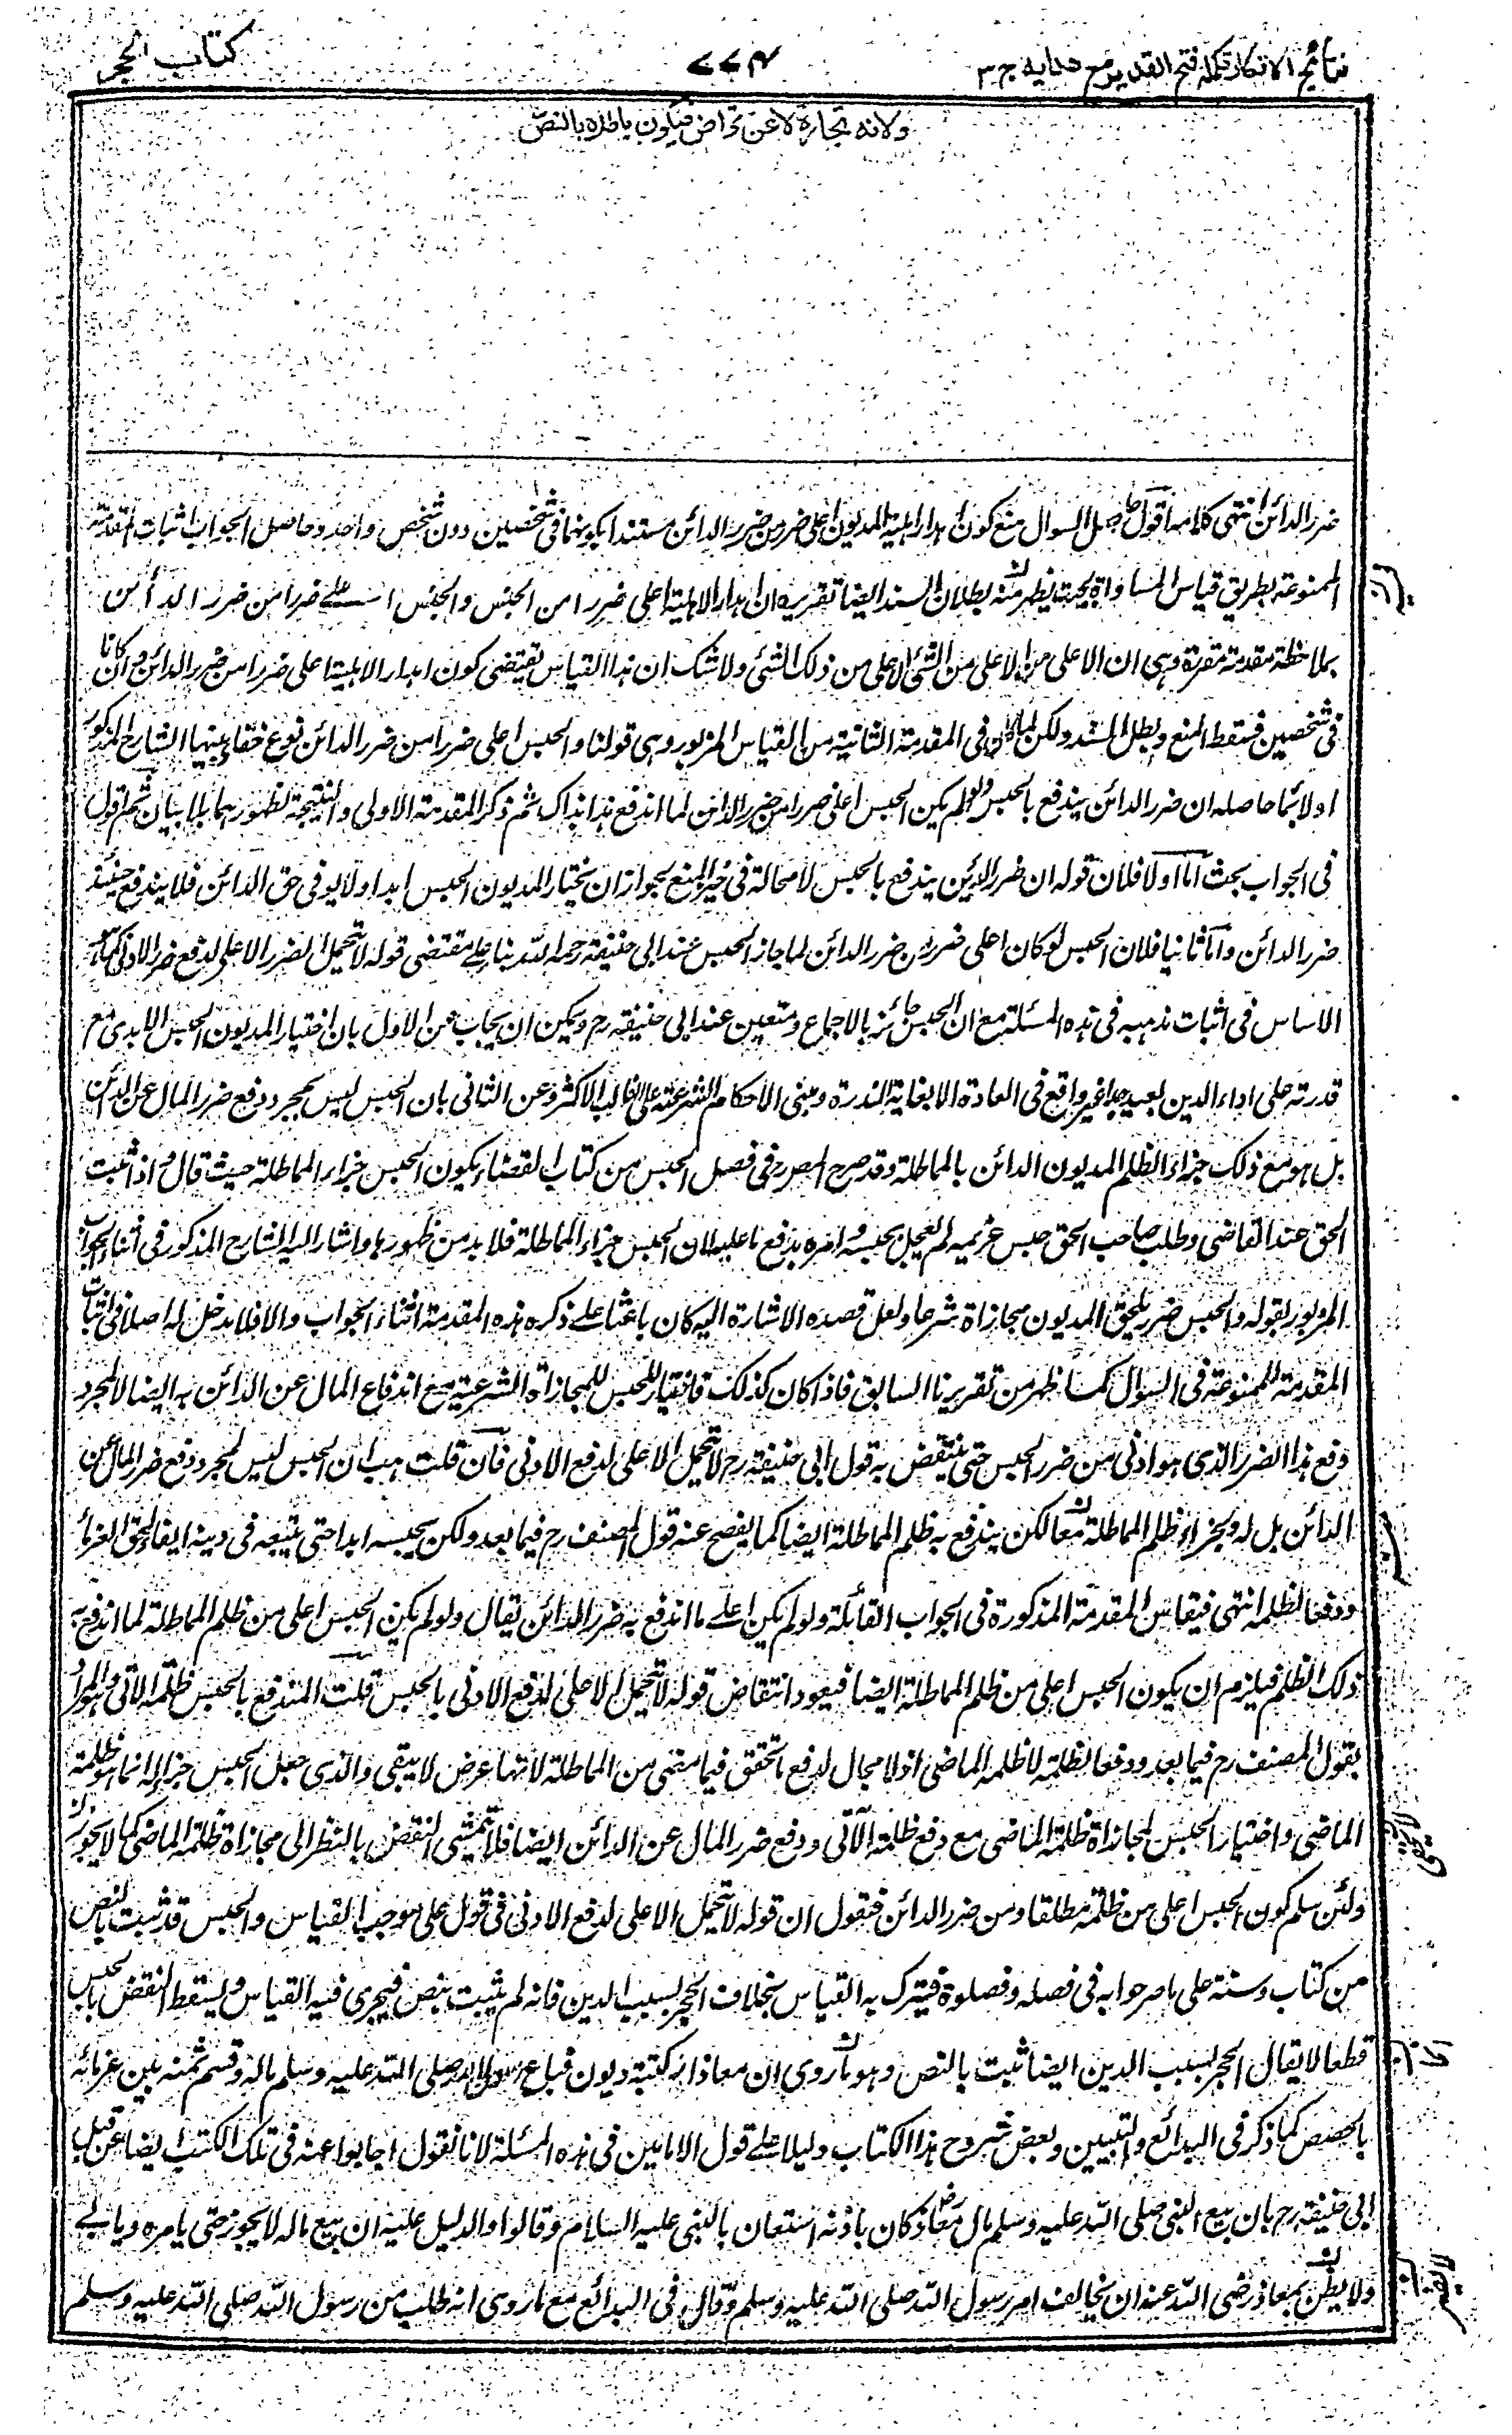 نتائج الافکار تکملہ فتح القدیر مع ھدایہ ج ۳
۷۷۴
کتاب الحجر
ولانه تجارة لا عن تراض فیکون باطلا بالنص
ضرر الدائن انتهى کلامه اقول حاصل السوال منع کون اهدار اهلیة المدیون اعلى ضررا من ضرر الدائن مستندا بکونهما فی شخصین دون شخص واحد وحاصل الجواب اثبات المقدمة
الممنوعة بطریق قیاس المساواة بحیث یظهر منه بطلان السند ایضا تقریره ان اهدار الاهلیة اعلى ضررا من الحبس والحبس اعلے ضررا من ضرر الدائن
بملاحظة مقدمة مقررة وهی ان الاعلى من الاعلى من الشئ الاعلى من ذلک الشئ ولا شک ان هذا القیاس یقتضی کون اهدار الاهلیة اعلى ضررا من ضرر الدائن وان کانا
فی شخصین فسقط المنع وبطل السند ولکن لما کان فی المقدمة الثانیة من القیاس المزبور وهی قولنا والحبس اعلى ضررا من ضرر الدائن نوع خفاء بینها الشارح المذکور
اولا بما حاصله ان ضرر الدائن یندفع بالحبس ولو لم یکن الحبس اعلى ضررا من ضرر الدائن لما اندفع هذا بذاک ثم ذکر المقدمة الاولى والنتیجة لظهورهما بلا بیان ثم اقول
فی الجواب بحث اما اولا فلان قوله ان ضرر الدائن یندفع بالحبس لا محالة فی حیز المنع لجواز ان یختار المدیون الحبس ابدا ولا یوفی حق الدائن فلا یندفع حینئذ
ضرر الدائن واما ثانیا فلان الحبس لو کان اعلى ضررا من ضرر الدائن لما جاز الحبس عند ابی حنیفة رحمه الله بناء علے مقتضى قوله لا یتحمل الضرر الاعلى لدفع ضرر الادنى کما هو
الاساس فی اثبات مذهبه فی هذه المسئلة مع ان الحبس جائز بالاجماع ومتعین عند ابی حنیفة رح ویمکن ان یجاب عن الاول بان اختیار المدیون الحبس الابدی مع
قدرته على اداء الدین بعید جدا غیر واقع فی العادة الا بغایة الندرة ومبنى الاحکام الشرعیة على الغالب الاکثر وعن الثانی بان الحبس لیس بمجرد دفع ضرر المال عن الدائن
بل هو مع ذلک جزاء لظلم المدیون الدائن بالمماطلة وقد صرح المصرح فی فصل الحبس من کتاب القضاء بکون الحبس جزاء المماطلة حیث قال و اذا ثبت
الحق عند القاضی وطلب صاحب الحق حبس غریمه لم یعجل بحبسه وامره بدفع ما علیه لان الحبس جزاء المماطلة فلا بد من ظهورها واشار الیه الشارح المذکور فی اثناء الجواب
المزبور بقوله والحبس ضرر یلحق المدیون مجازاة شرعا ولعل قصده الاشارة الیه کان باعثا علے ذکره هذه المقدمة اثناء الجواب والا فلا دخل له اصلا فی اثبات
المقدمة الممنوعة فی السوال کما ظهر من تقریرنا السابق فاذا کان کذلک فاختیار الحبس للمجازاة الشرعیة مع اندفاع المال عن الدائن به ایضا لا لمجرد
دفع هذا الضرر الذی هو ادنى من ضرر الحبس حتى ینتقض به قول ابی حنیفة رح لا یتحمل الاعلى لدفع الادنى فان قلت هب ان الحبس لیس لمجرد دفع ضرر المال عن
الدائن بل له ولجزاء ظلم المماطلة معا لکن یندفع به ظلم المماطلة ایضا کما یفصح عنه قول المصنف رح فیما بعد ولکن یحبسه ابدا حتى یبیعه فی دینه ایفاء لحق الغرماء
ودفعا لظلمه انتهى فیقاس المقدمة المذکورة فی الجواب القائلة ولو لم یکن اعلے ما اندفع به ضرر الدائن یقال ولو لم یکن الحبس اعلى من ظلم المماطلة لما اندفع به
ذلک الظلم فیلزم ان یکون الحبس اعلى من ظلم المماطلة ایضا فیعود انتقاض قوله لا یتحمل الاعلى لدفع الادنى بالحبس قلت المندفع بالحبس ظلمه الآتی وهو المراد
بقول المصنف رح فیما بعد ودفعا لظلمه لا ظلمه الماضی اذ لا مجال لدفع ما تحقق فیما مضى من المماطلة لانها عرض لا یبقى والذی جعل الحبس جزاء له انما هو ظلمه
الماضی واختیار الحبس لمجازاة ظلمه الماضی مع دفع ظلمه الآتی ودفع ضرر المال عن الدائن ایضا فلا یتمشى النقض بالنظر الى مجازاة ظلمه الماضی کما لا یخفى
ولئن سلم کون الحبس اعلى من ظلمه مطلقا ومن ضرر الدائن فنقول ان قوله لا یتحمل الاعلى لدفع الادنى فی قول على موجب القیاس والحبس قد ثبت بالنص
من کتاب وسنة على ما صرحوا به فی فصله وفصلوه فیترک به القیاس بخلاف الحجر بسبب الدین فانه لم یثبت بنص فیجری فیه القیاس ویسقط النقض بالحبس
قطعا لا یقال الحجر بسبب الدین ایضا ثبت بالنص وهو ما روی ان معاذا رکبته دیون فباع رسول الله صلى الله علیه وسلم ماله وقسم ثمنه بین غرمائه
بالحصص کما ذکر فی البدائع والتبیین وبعض شروح هذا الکتاب دلیلا علے قول الامامین فی هذه المسئلة لانا نقول اجابوا عنه فی تلک الکتب ایضا عن قبل
ابی حنیفة رح بان بیع النبی صلى الله علیه وسلم مال معاذ رض کان باذنه استعان بالنبی علیه السلام وقالوا والدلیل علیه ان بیع ماله لا یجوز حتى یامره ویابے
ولا یظن بمعاذ رضی الله عنه ان یخالف امر رسول الله صلى الله علیه وسلم وقال فی البدائع مع ما روی انه طلب من رسول الله صلى الله علیه وسلم